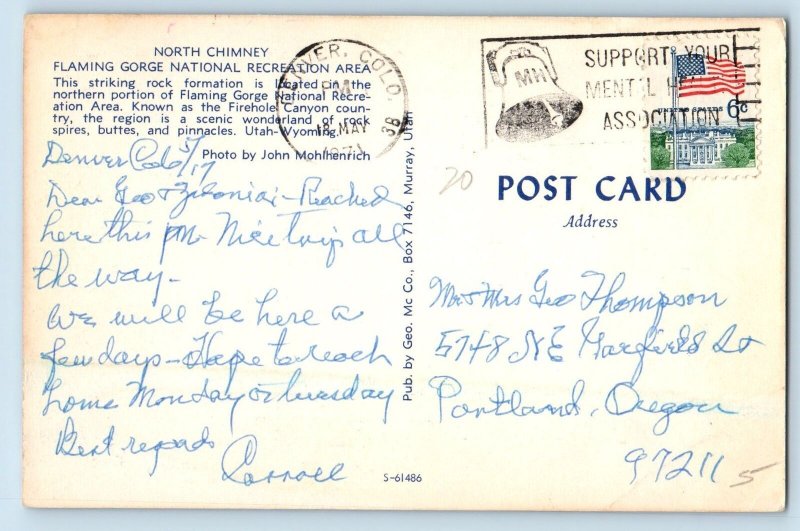 NORTH CHIMNEY
FLAMING GORGE NATIONAL RECREATION AREA
This striking rock formation is located in the
northern portion of Flaming Gorge National Recre-
ation Area. Known as the Firehole Canyon coun-
try, the region is a scenic wonderland of rock
spires, buttes, and pinnacles. Utah-Wyoming.
Photo by John Mohlhenrich
Denver Colo 5/17
Dear Geo & - Reached
here this PM Nice trip all
the way-
We will be here a
few days - Hope to reach
home Monday or Tuesday
Best regards
Carroll
Pub. by Geo. Mc Co., Box 7146, Murray, Utah
S-61486
DENVER, COLO.
PM
18 MAY
1971
MH
SUPPORT YOUR
MENTAL HEALTH
ASSOCIATION
UNITED STATES 6c
20
POST CARD
Address
Mr & Mrs Geo Thompson
5748 NE Garfield St
Portland, Oregon
97211
5